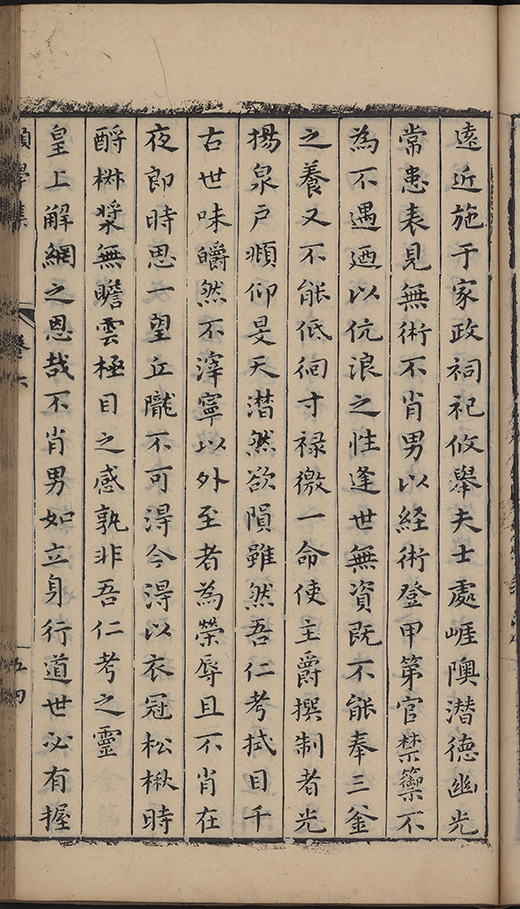 遠近施于家政祠祀攸舉夫士處崕隩潛德幽光
常患表見無術不肖男以経術登甲第官禁籞不
為不遇迺以伉浪之性逢世無資既不能奉三釜
之養又不能低徊寸禄徼一命使主爵撰制者光
揚泉戶頫仰旻天潸然欲隕雖然吾仁考拭目千
古世味皭然不滓寧以外至者為榮辱且不肖在
夜郎時思一望丘隴不可淂今淂以衣冠松楸時
酹椒漿無瞻雲極目之感孰非吾仁考之靈
皇上解網之恩哉不肖男如立身行道世必有握